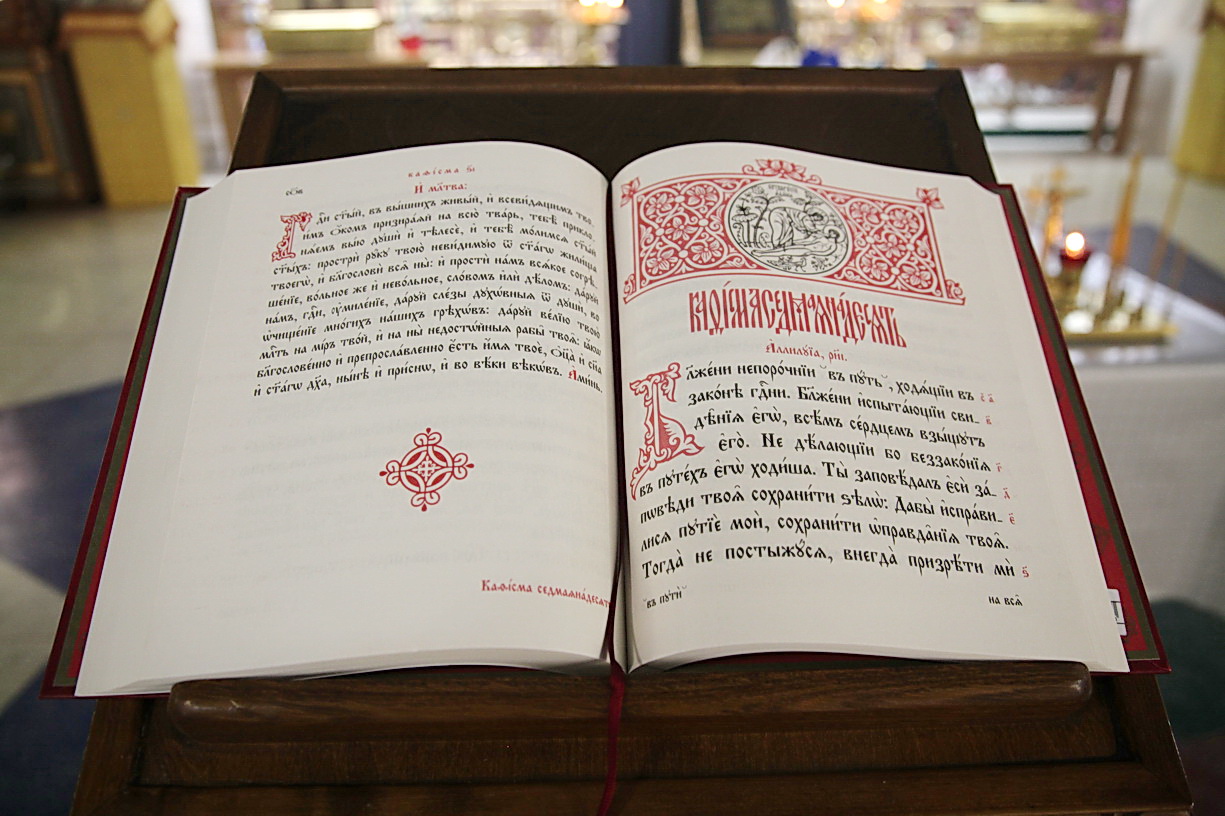 каѳі́сма ѕ҃і
И҆ мл҃тва:
Гд҇и ст҃ы́й, въ вы́шнихъ живы́й, и҆ всеви́дѧщимъ тво-
и́мъ ѻ҆́комъ призира́ѧй на всю̀ тва́рь, тебѣ̀ прикло-
нѧ́емъ вы́ю дꙋшѝ и҆ тѣлесѐ, и҆ тебѣ̀ мо́лимсѧ ст҃ы́й
ст҃ы́хъ: прострѝ рꙋ́кꙋ твою̀ неви́димꙋю ѿ ст҃а́гѡ жили́ща
твоегѡ̀, и҆ бл҃гословѝ всѧ̑ ны̀: и҆ простѝ на́мъ всѧ́кое согрѣ-
ше́нїе, во́льное же и҆ нево́льное, сло́вомъ и҆лѝ дѣ́ломъ: да́рꙋй
на́мъ, гд҇и, ᲂу҆миле́нїе, да́рꙋй сле́зы дꙋхѡ́вныѧ ѿ дꙋшѝ, во
ѡ҆чище́нїе мно́гихъ на́шихъ грѣхѡ́въ: да́рꙋй ве́лїю твою̀
мл҇ть на мі́ръ тво́й, и҆ на ны̀ недостѡ́йныѧ рабы̑ твоѧ̑: ꙗ҆́кѡ
бл҃гослове́нно и҆ препросла́вленно є҆́сть и҆́мѧ твоѐ, ѻ҆ц҃а̀ и҆ сн҃а
и҆ ст҃а́гѡ дх҃а, ны́нѣ и҆ при́снѡ, и҆ во вѣ́ки вѣкѡ́въ. А҆ми́нь.
Каѳі́сма седмаѧна́десѧт
КАѲІ́СМА СЕДМАѦНА́ДЕСѦТЬ
А҆ллилꙋ́їа, ри҃і.
Бл҃же́ни непоро́чнїи ⸌въ пꙋ́ть⸍, ходѧ́щїи въ є҃ а҃
зако́нѣ гд҇ни. Бл҃же́ни и҆спыта́ющїи сви- в҃
дѣ̑нїѧ є҆гѡ̀, всѣ́мъ се́рдцемъ взы́щꙋтъ
є҆го̀. Не дѣ́лающїи бо беззако́нїѧ г҃
въ пꙋте́хъ є҆гѡ̀ ходи́ша. Ты̀ заповѣ́далъ є҆сѝ за́- д҃
пѡвѣди твоѧ̑ сохрани́ти ѕѣлѡ̀: Дабы̀ и҆спра́ви- є҃
лисѧ пꙋтїѐ моѝ, сохрани́ти ѡ҆правда̑нїѧ твоѧ̑.
Тогда̀ не постыжꙋ́сѧ, внегда̀ призрѣ́ти мѝ ѕ҃
⸌въ пꙋтѝ⸍ на всѧ̑